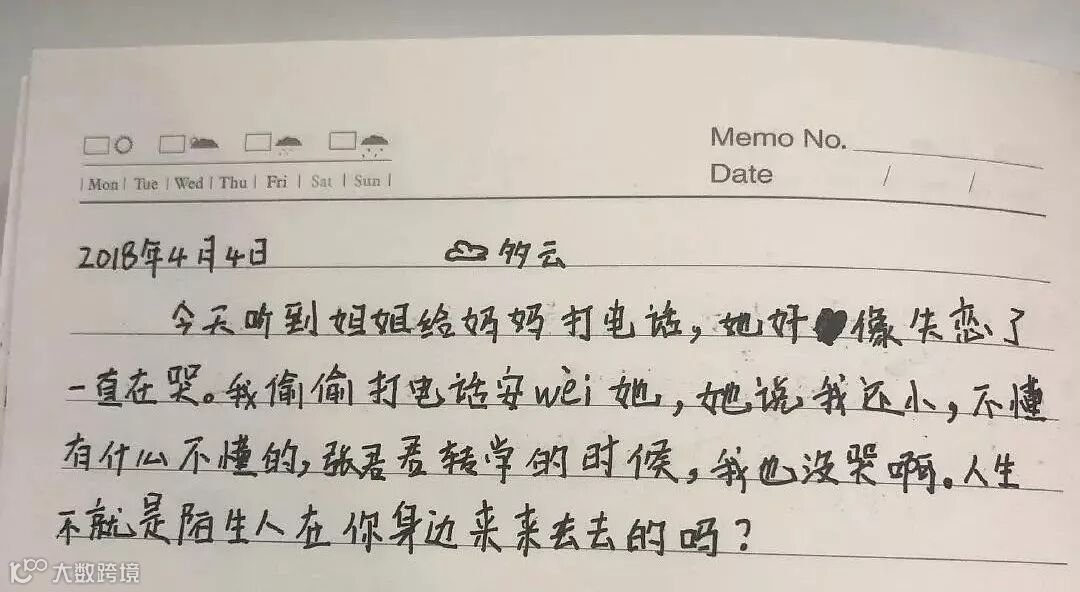 Memo No.
Date / /
Mon Tue Wed Thu Fri Sat Sun
2018年4月4日 多云
今天听到姐姐给妈妈打电话，她好像失恋了
一直在哭。我偷偷打电话安wèi她，她说我还小，不懂
有什么不懂的，张君君转学的时候，我也没哭啊。人生
不就是陌生人在你身边来来去去的吗？
大数跨境